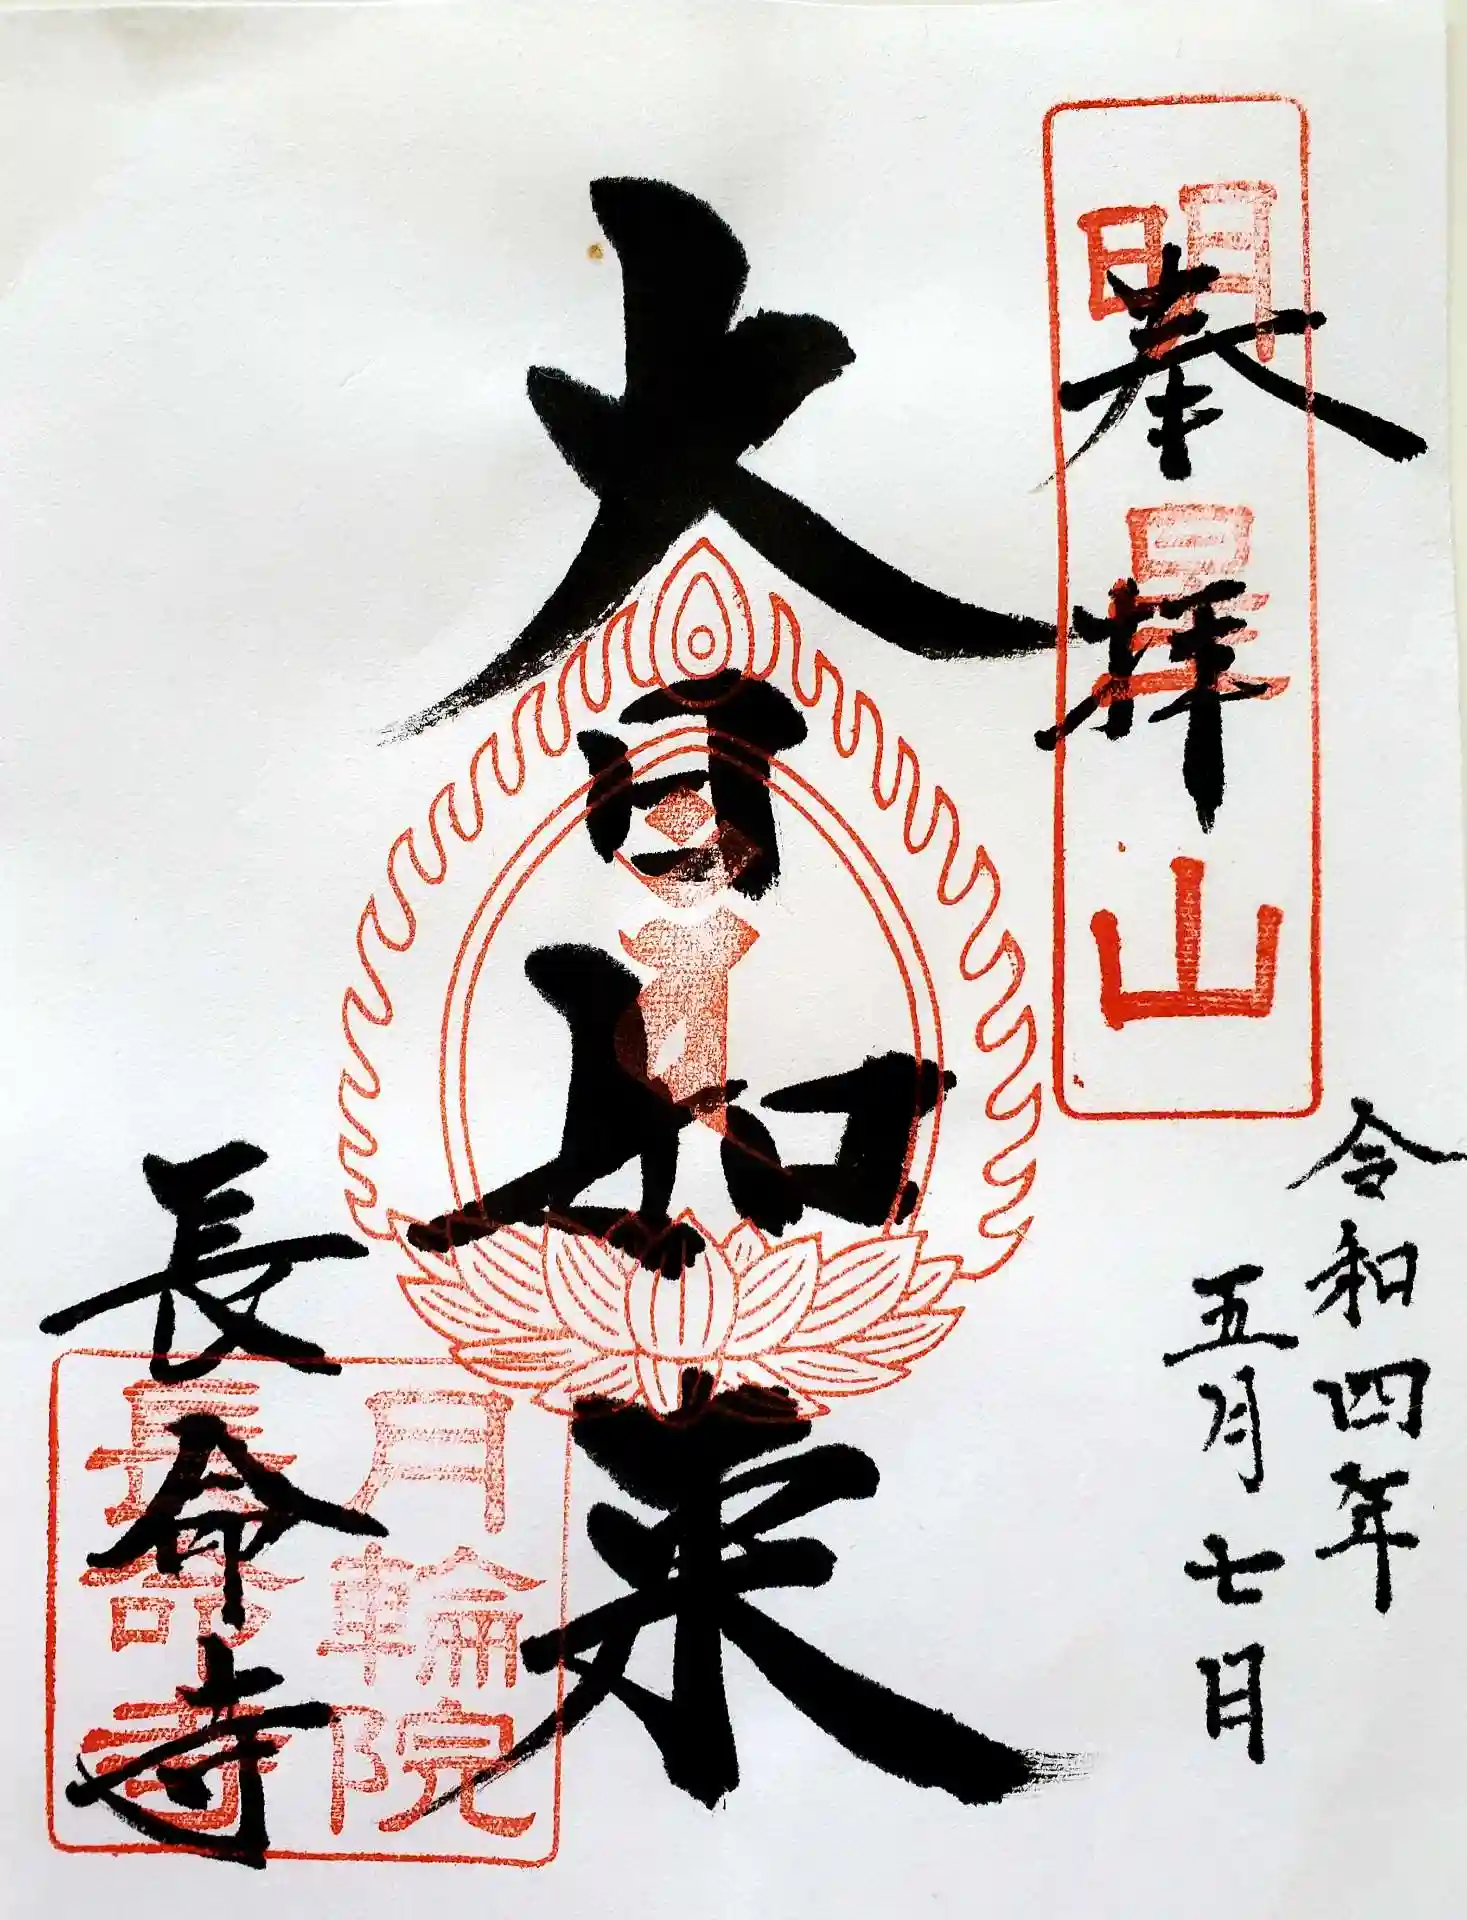 明星山
奉拝
令和四年
五月七日
大日如来
月輪院
長命寺
長命寺